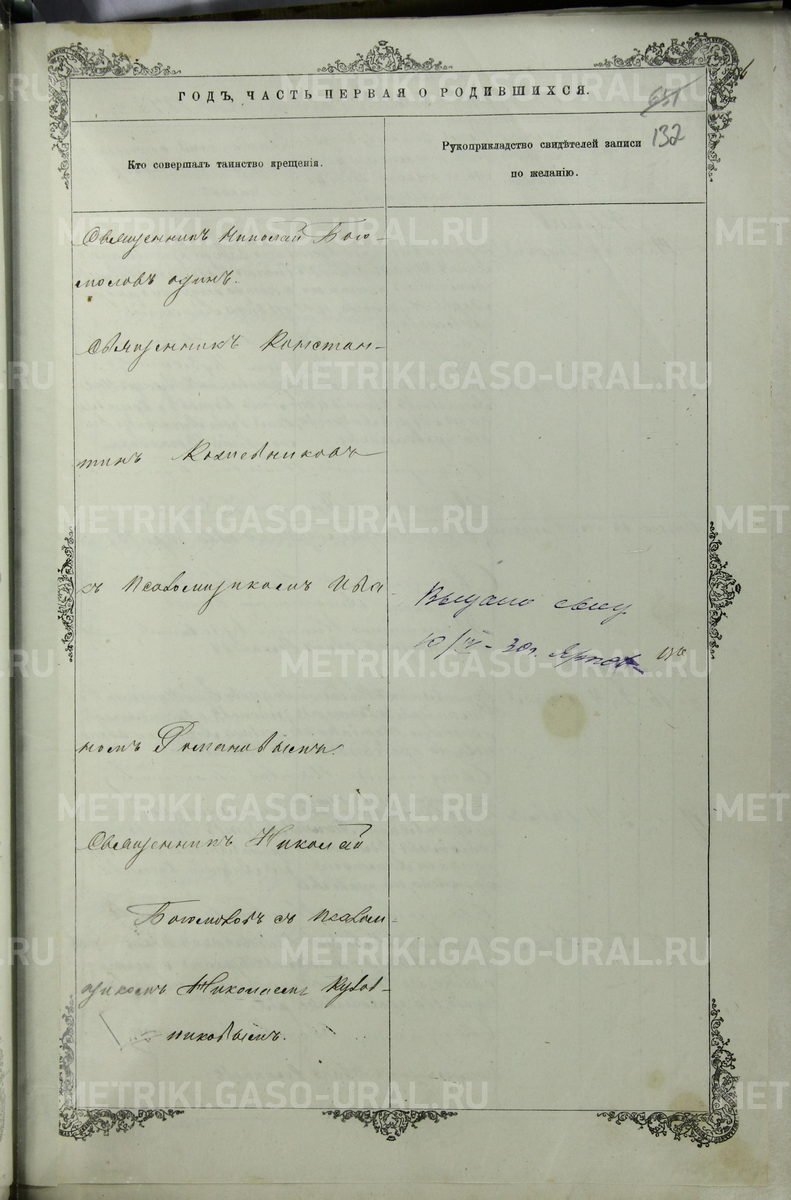 ГОДЪ, ЧАСТЬ ПЕРВАЯ О РОДИВШИХСЯ.
651
132
Кто совершалъ таинство крещенія.
Рукоприкладство свидѣтелей записи
по желанію.
Священникъ Николай Бого-
моловъ одинъ.
Священникъ Констан-
тинъ Кожевниковъ
съ Псаломщикомъ Ива
Выдано свид
10/IV-30г.
номъ Романовымъ.
Священникъ Николай
Богомоловъ съ Псалом-
щикомъ Николаемъ
никовымъ.
METRIKI.GASO-URAL.RU